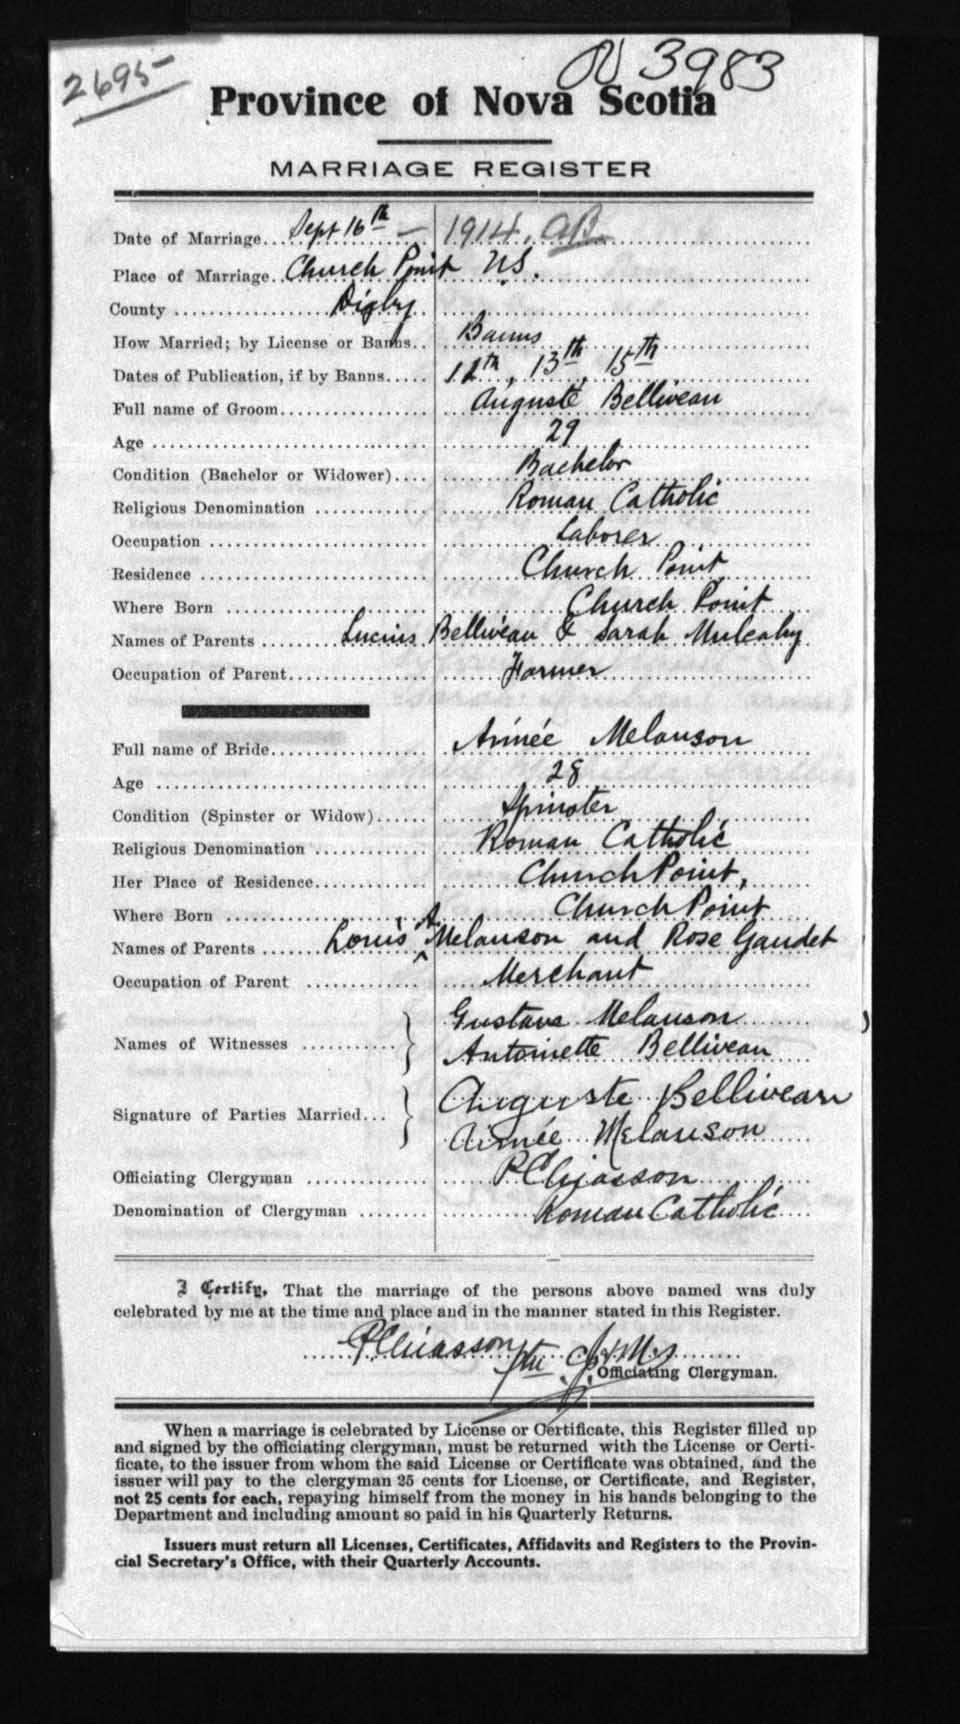 2695-
N 3983
Province of Nova Scotia
MARRIAGE REGISTER
Date of Marriage... Sept 16th - 1914.
Place of Marriage.. Church Point N.S.
County .................. Digby
How Married; by License or Banns.. Banns
Dates of Publication, if by Banns..... 12th, 13th, 15th
Full name of Groom................. Auguste Belliveau
Age ................................... 29
Condition (Bachelor or Widower).... Bachelor
Religious Denomination .............. Roman Catholic
Occupation ............................ Laborer
Residence ............................. Church Point
Where Born .......................... Church Point
Names of Parents ........ Lucius Belliveau & Sarah Mulcahy
Occupation of Parent................ Farmer
Full name of Bride................... Aimée Melanson
Age ................................... 28
Condition (Spinster or Widow)...... Spinster
Religious Denomination .............. Roman Catholic
Her Place of Residence.............. Church Point,
Where Born .......................... Church Point
Names of Parents ...... Louis A Melanson and Rose Gaudet
Occupation of Parent .............. Merchant
Names of Witnesses ........... Gustave Melanson
Antoinette Belliveau
Signature of Parties Married... Auguste Belliveau
Aimée Melanson
Officiating Clergyman .............. P Chiasson
Denomination of Clergyman ........ Roman Catholic
I Certify, That the marriage of the persons above named was duly
celebrated by me at the time and place and in the manner stated in this Register.
P Chiasson
Officiating Clergyman.
When a marriage is celebrated by License or Certificate, this Register filled up
and signed by the officiating clergyman, must be returned with the License or Certi-
ficate, to the issuer from whom the said License or Certificate was obtained, and the
issuer will pay to the clergyman 25 cents for License, or Certificate, and Register,
not 25 cents for each, repaying himself from the money in his hands belonging to the
Department and including amount so paid in his Quarterly Returns.
Issuers must return all Licenses, Certificates, Affidavits and Registers to the Provin-
cial Secretary's Office, with their Quarterly Accounts.